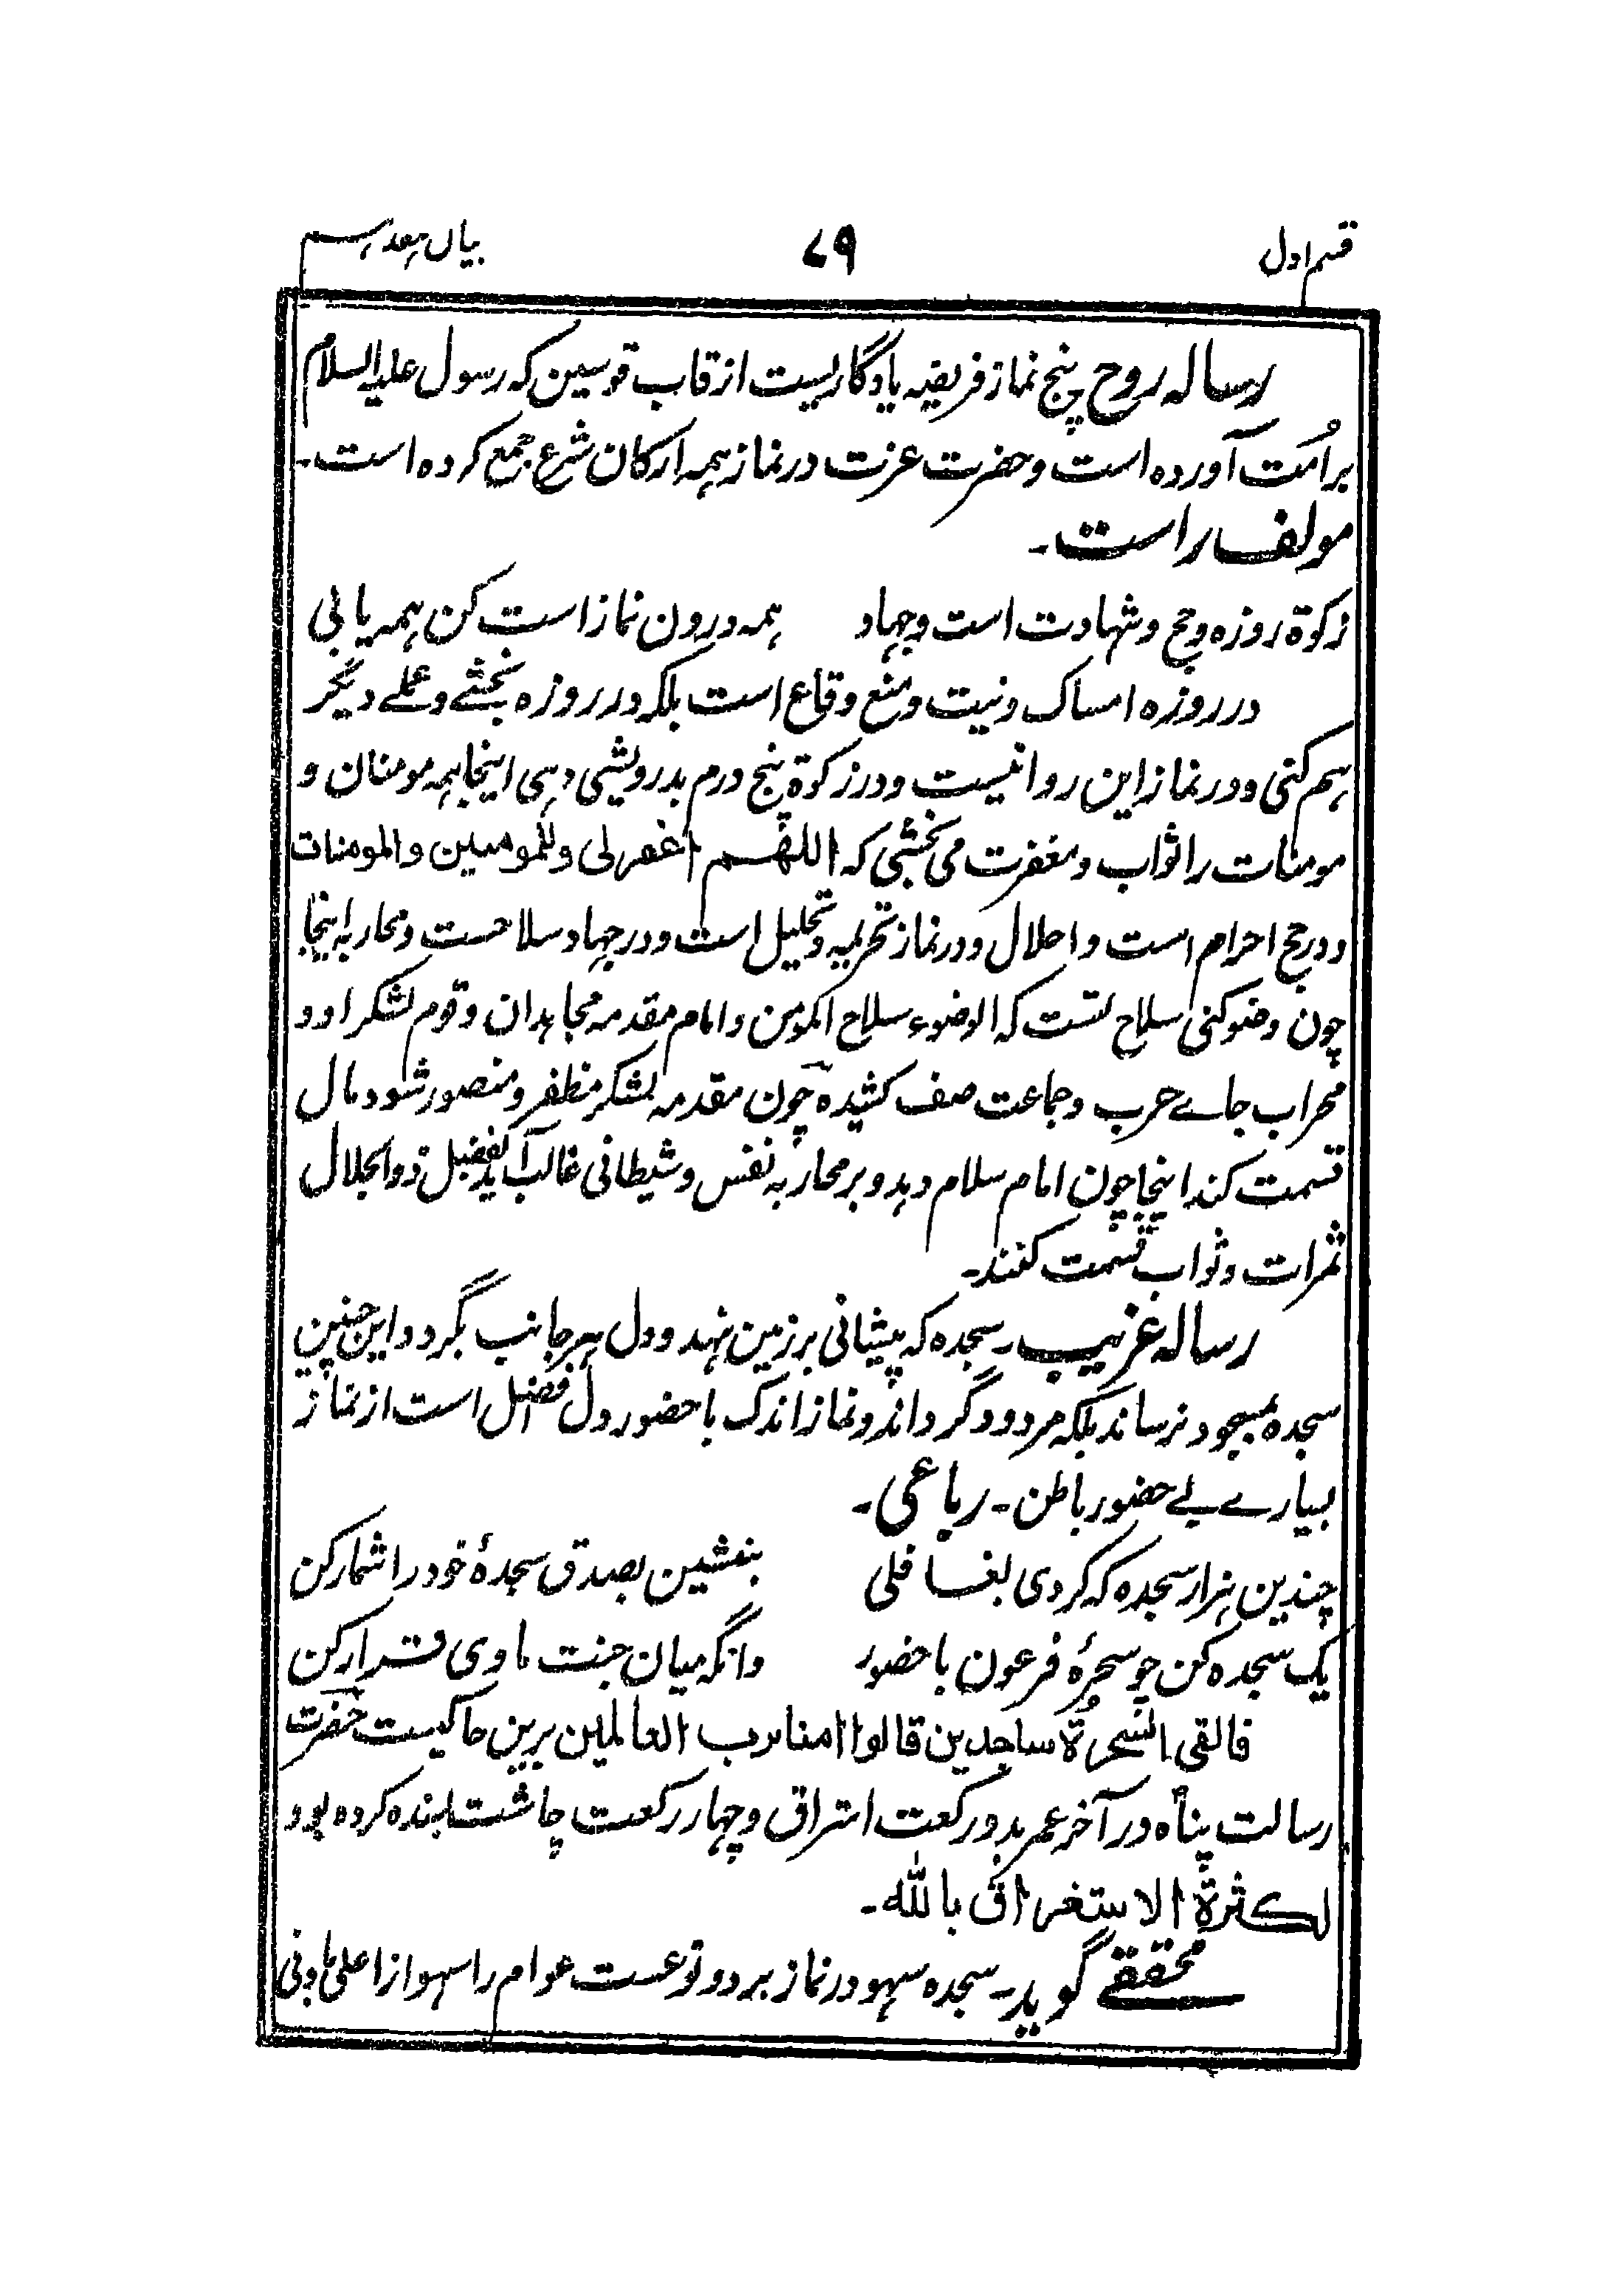 قسم اول ۷۹ بیان
رسالہ روح پنج نماز فریضہ یادگاریست از قاب قوسین کہ رسول علیہ السلام
بر اُمت آوردہ است و حضرت عزت در نماز ہمہ ارکان شرع جمع کردہ است۔
مولف راست۔
زکوٰۃ روزہ و حج و شہادت است و جہاد ہمہ درون نماز است کن ہمہ یابی
در روزہ امساک و نیت و منع وقاع است بلکہ در روزہ بخشے و عملے دیگر
ہم کنی و در نماز این روا نیست و در زکوٰۃ پنج درم بدرویشی دہی اینجا ہمہ مومنان و
مومنات را ثواب و مغفرت می بخشی کہ اللھم اغفر لی وللمومنین والمومنات
و در حج احرام است و احلال و در نماز تحریمہ و تحلیل است و در جہاد سلاحست و محاربہ اینجا
چون وضو کنی سلاح تست کہ الوضوء سلاح المومن و امام مقدمہ مجاہدان و قوم لشکر او و
محراب جاے حرب و جماعت صف کشیدہ چون مقدمہ لشکر مظفر و منصور شود مال
قسمت کند اینجا چون امام سلام دہد و بر محاربہ نفس و شیطانی غالب آید بفضل ذوالجلال
ثمرات و ثواب قسمت کنند۔
رسالہ غریب۔ سجدہ کہ پیشانی بر زمین نہد و دل بہر جانب بگردد این چنین
سجدہ بمسجود نرساند بلکہ مردود گرداند و نماز اندک با حضور دل افضل است از نماز
بسیارے بے حضور باطن۔ رباعی۔
چندین ہزار سجدہ کہ کردی بغافلی بنشین بصدق سجدۂ خود را شمار کن
یک سجدہ کن چو سحرۂ فرعون با حضور وانگہ میان جنت ماوی قرار کن
فالقی السحرۃ ساجدین قالوا امنا برب العالمین برین حاکیست حضرت
رسالت پناہ در آخر عمر بدو رکعت اشراق و چہار رکعت چاشت بسندہ کردہ بود
لکثرۃ الاستغراق باللہ۔
محققے گوید۔ سجدہ سہو در نماز بر دو نوعست عوام را سہو از اعلی بادنی